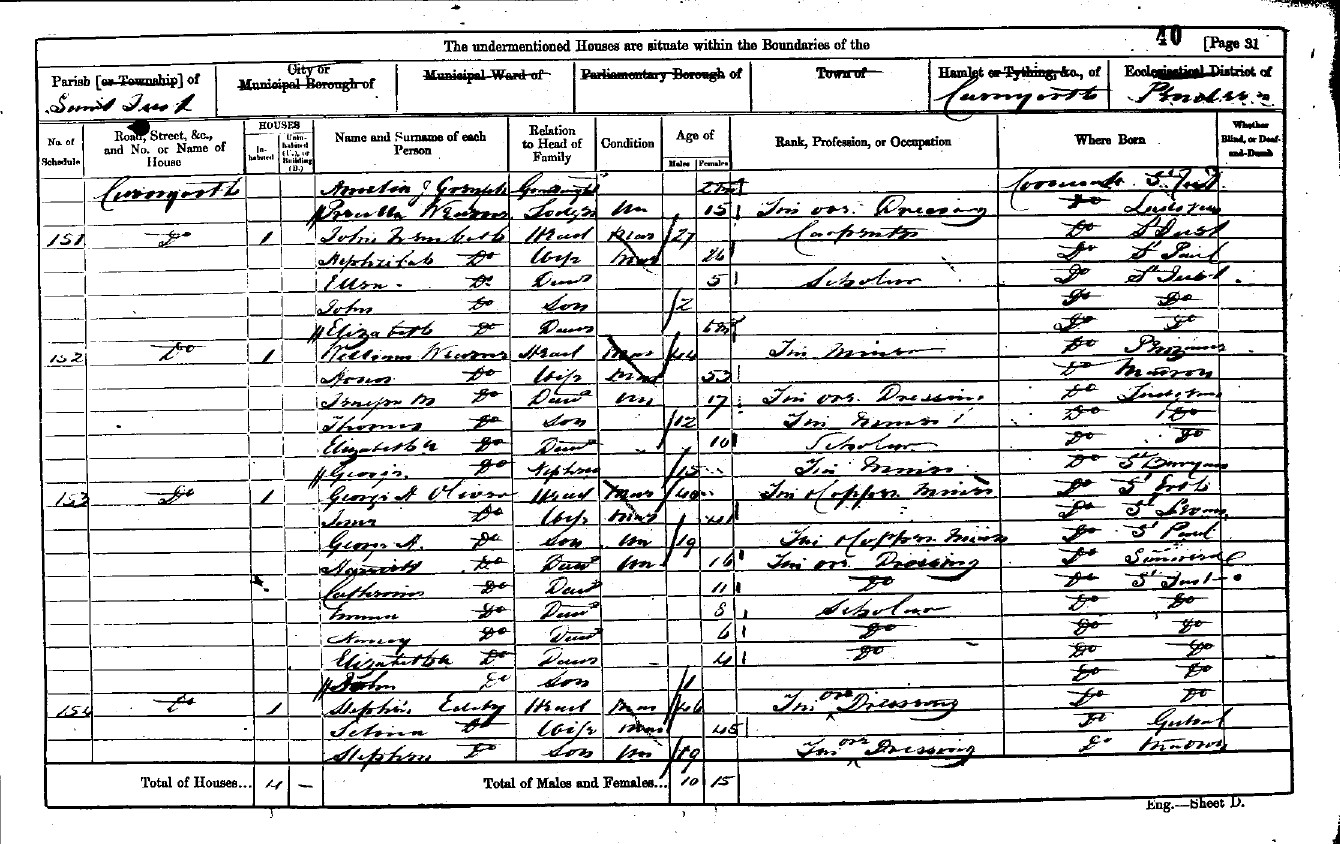 40
The undermentioned Houses are situate within the Boundaries of the [Page 31
Parish [or Township] of City or Municipal Borough of Municipal Ward of Parliamentary Borough of Town of Hamlet or Tything, &c., of Ecclesiastical District of
Saint Just Carnyorth Pendeen
No. of Schedule Road, Street, &c., and No. or Name of House HOUSES Inhabited Uninhabited (U.), or Building (B.) Name and Surname of each Person Relation to Head of Family Condition Age of Males Females Rank, Profession, or Occupation Where Born Whether Blind, or Deaf-and-Dumb
Carnyorth Amelia J Cornwall St Just
Lodger Un 15 Tin ore Dressing Do Ludgvan
151 Do 1 John Head Mar 27 Carpenter Do St Just
Hephzibah Do Wife Mar 26 Do St Paul
Ellen Do Daur 5 Scholar Do St Just
John Do Son 2 Do Do
Elizabeth Do Daur Do Do
152 Do 1 William Head Mar 44 Tin Miner Do
Do Wife Mar 53 Do Madron
Do Daur Un 17 Tin ore Dressing Do Ludgvan
Thomas Do Son 12 Tin Miner Do Do
Elizabeth Do Daur 10 Scholar Do Do
George Do Nephew 15 Tin Miner Do St Buryan
153 Do 1 George H Head Mar 40 Tin & Copper Miner Do St
Jane Do Wife Mar 41 Do St Levan
George H. Do Son Un 19 Tin & Copper Miner Do St Paul
Do Daur Un 16 Tin ore Dressing Do Sancreed
Catherine Do Daur 11 Do Do St Just
Emma Do Daur 8 Scholar Do Do
Nancy Do Daur 6 Do Do Do
Elizabeth Do Daur 4 Do Do Do
John Do Son 1 Do Do
154 Do 1 Stephen Eddy Head Mar 46 Tin ore Dressing Do Do
Selina Do Wife Mar 45 Do Gulval
Stephen Do Son Un 19 Tin ore Dressing Do Madron
Total of Houses... 4 — Total of Males and Females... 10 15
Eng.—Sheet D.